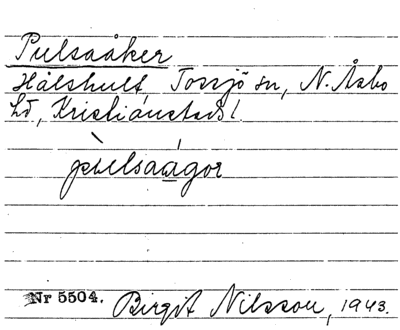 Pulsaåker
Hålshult Tossjö sn, N. Åsbo
hd, Kristianstads l.
pùlsaágor
Nr 5504. Birgit Nilsson, 1943.